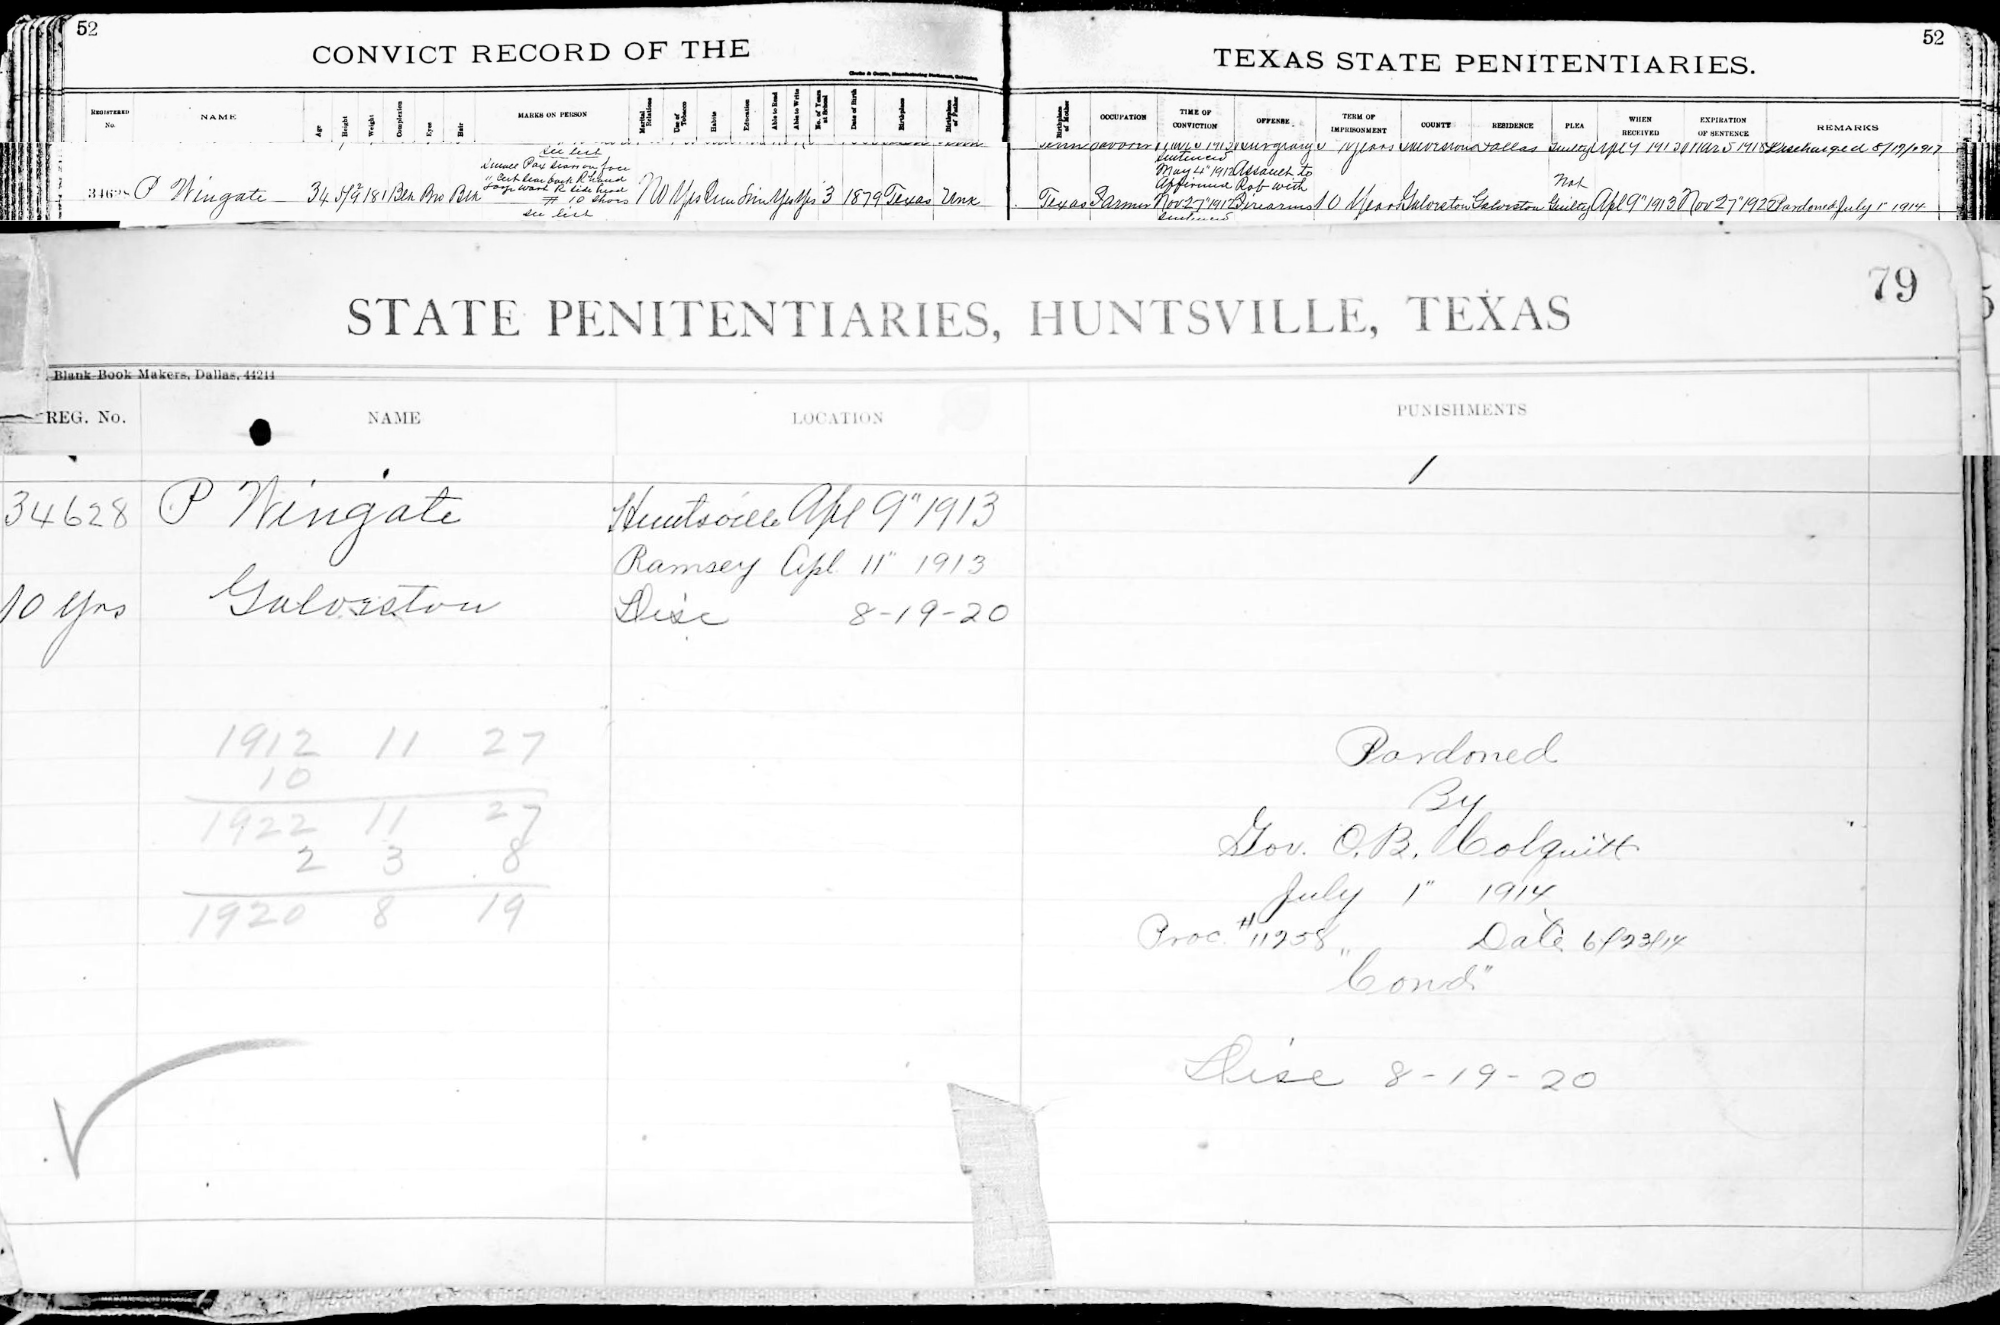 52
CONVICT RECORD OF THE
TEXAS STATE PENITENTIARIES.
52
REGISTERED No. NAME Age Height Weight Complexion Eyes Hair MARKS ON PERSON Marital Relations Use of Tobacco Habits Education Able to Read Able to Write No. of Years at School Date of Birth Birthplace Birthplace of Father Birthplace of Mother OCCUPATION TIME OF CONVICTION OFFENSE. TERM OF IMPRISONMENT COUNTY RESIDENCE PLEA WHEN RECEIVED EXPIRATION OF SENTENCE REMARKS
see list
Guilty Apl 4 1913 Mar 5 1918 Discharged
sentenced
May 4" 1912 Assault to
Affirmed Rob with
Not
34628 P Wingate 34 5/9½ 181 Blk Bro Blk # 10 shoes No Yes Yes Yes 3 1879 Texas Unk Texas Farmer Nov 27" 1912 Firearms 10 Years Galveston Galveston Guilty Apl 9" 1913 Nov 27" 1922 Pardoned July 1" 1914
see list
sentenced
79
STATE PENITENTIARIES, HUNTSVILLE, TEXAS
Blank-Book Makers, Dallas, 44214
REG. No. NAME LOCATION PUNISHMENTS
34628 P Wingate Huntsville Apl 9" 1913
Ramsey Apl 11" 1913
10 Yrs Galveston Disc 8-19-20
1912 11 27
10
1922 11 27
2 3 8
1920 8 19
Pardoned
By
Gov. O.B. Colquitt
July 1" 1914
Proc. # 11258 Date 6/23/14
"Cond"
Disc 8-19-20